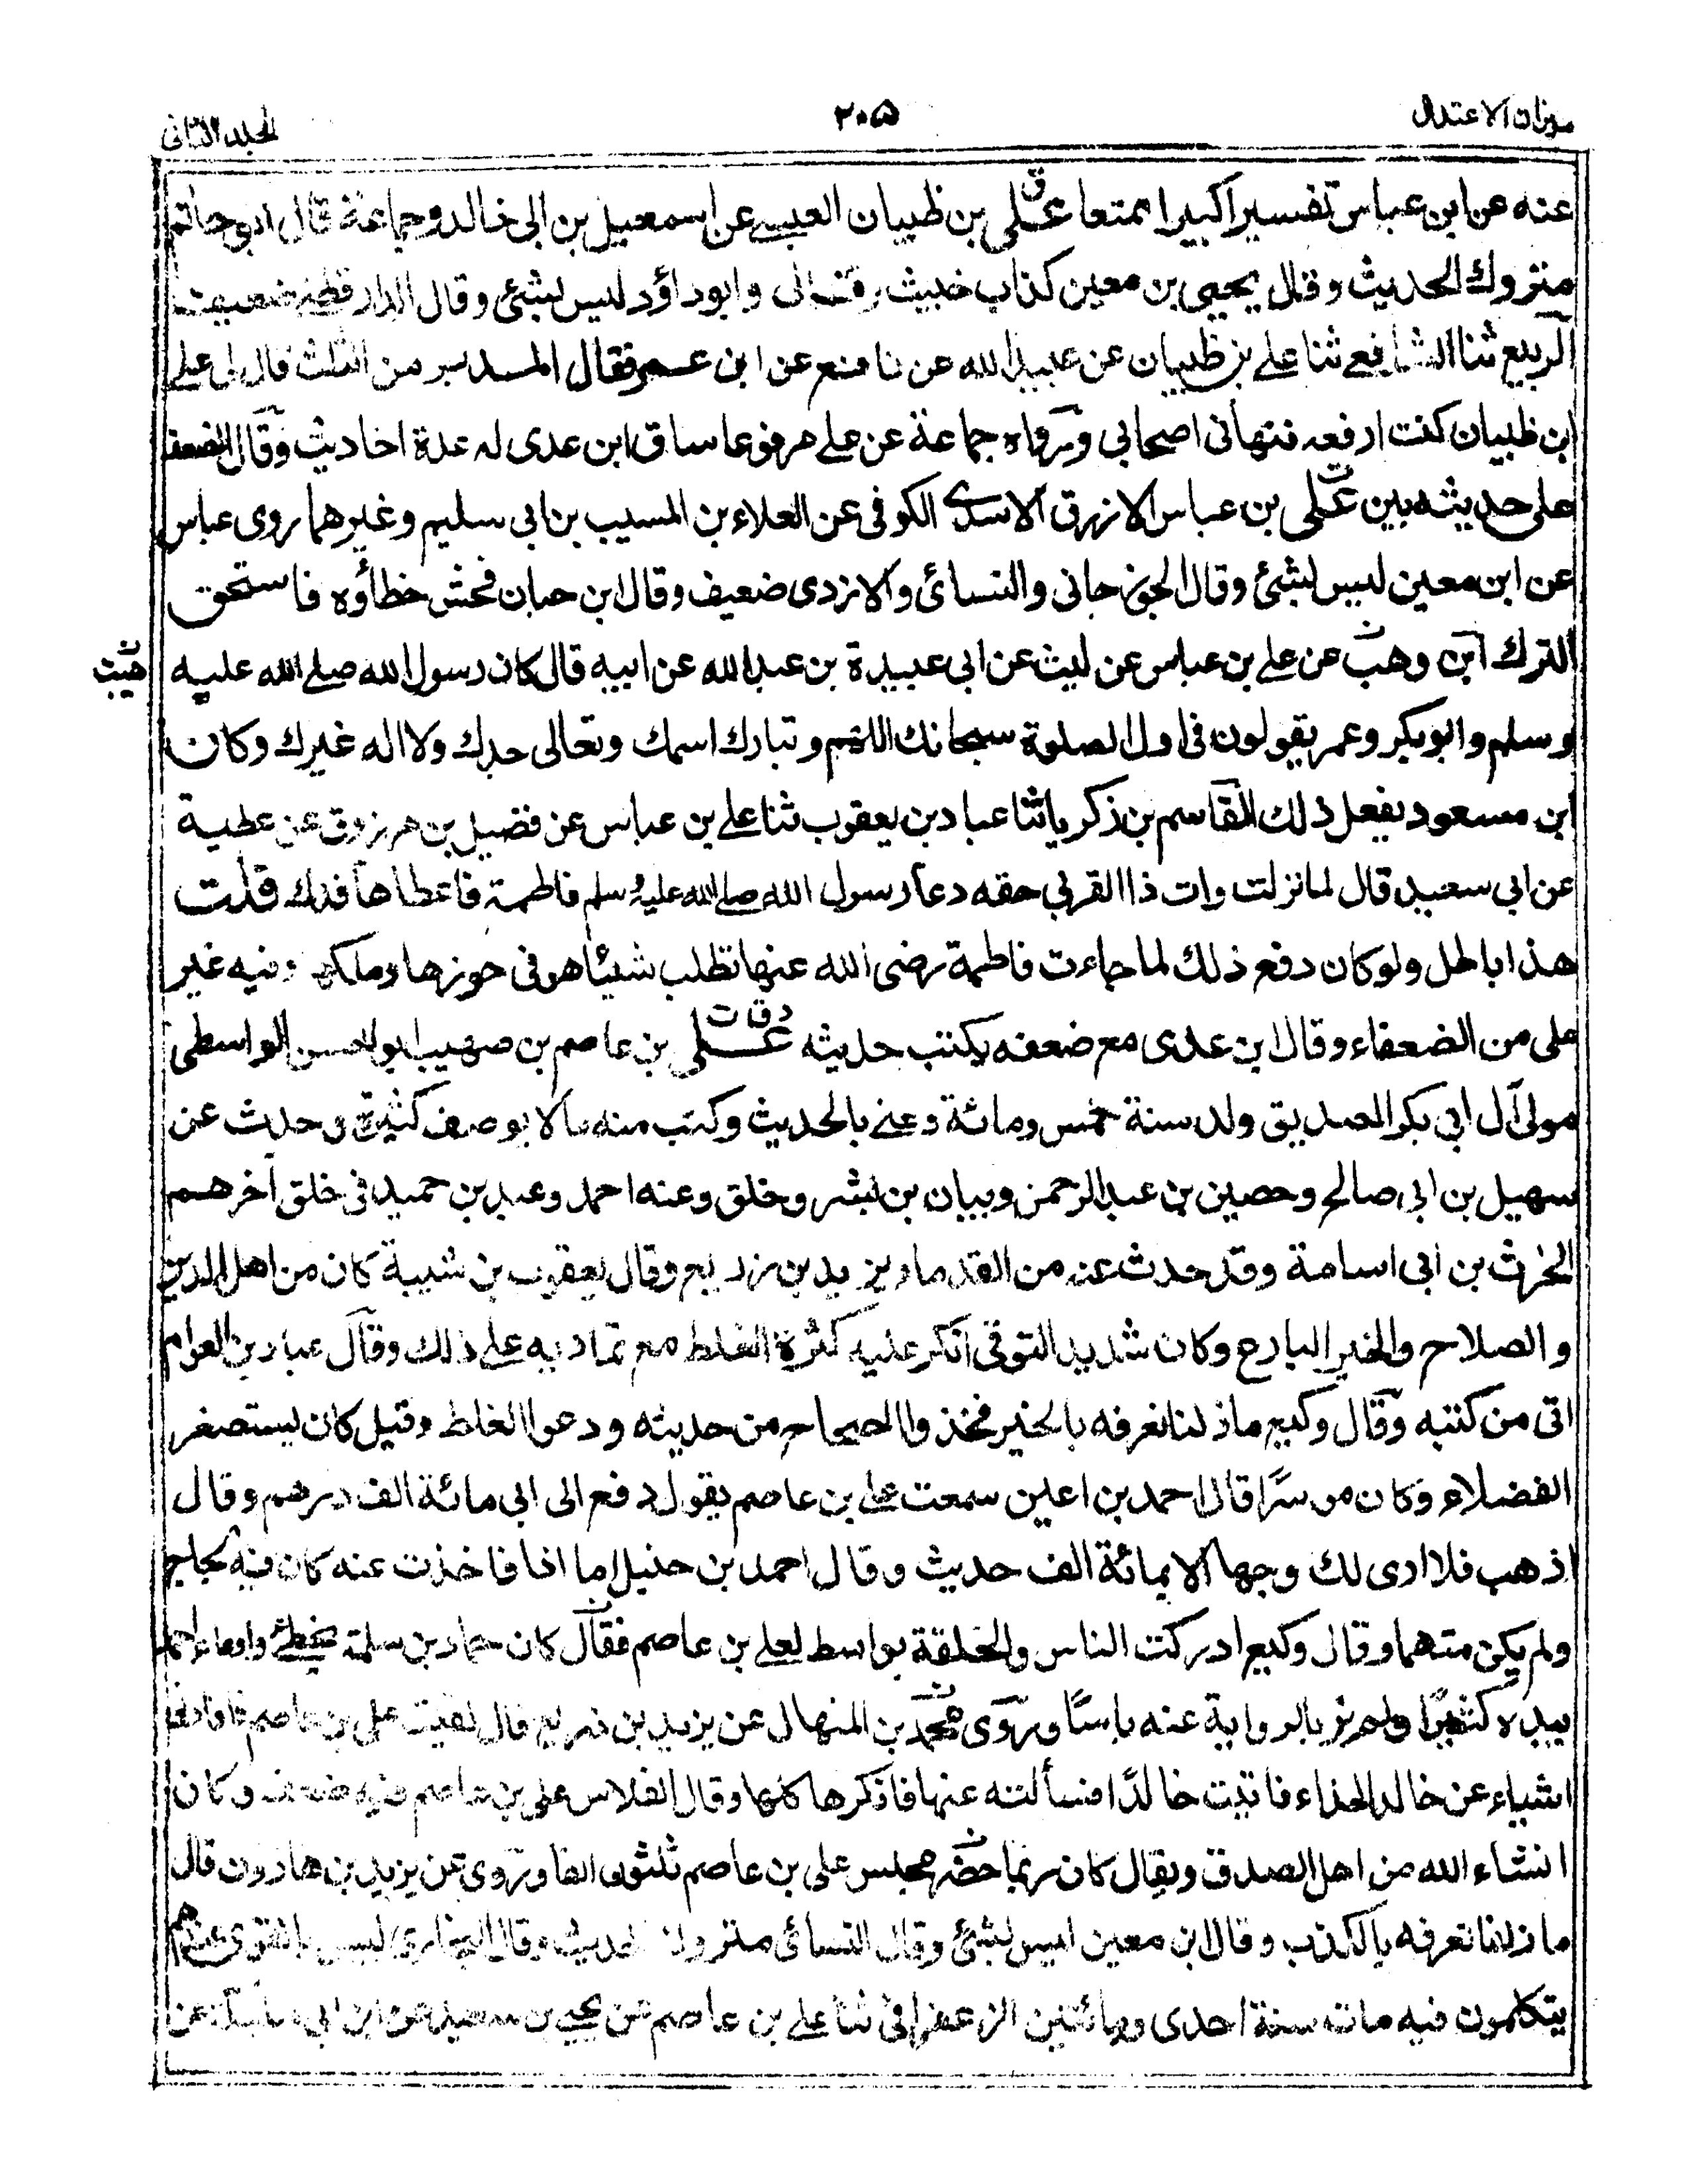 ميزان الاعتدال
٢٠٥
الجلد الثانى
عنه عن ابن عباس تفسيرا كبيرا ممتعا على ق بن ظبيان العبسے عن اسمعيل بن ابى خالد وجماعة قال ابو حاتم
متروك الحديث وقال يحيى بن معين كذاب خبيث وقال وابو داؤد ليس بشئ وقال الدارقطنے ضعيف
الربيع ثنا الشافعے ثنا علے بن ظبيان عن عبيد الله عن نافع عن ابن عمر فقال المدبر من الثلث قال لى علے
ابن ظبيان كنت ارفعه فنهانى اصحابى ورواه جماعة عن علے مرفوعا ساق ابن عدى له عدة احاديث وقال الضعف
على حديثه بين على ت بن عباس الازرق الاسدى الكوفى عن العلاء بن المسيب بن ابى سليم وغيرهما روى عباس
عن ابن معين ليس بشئ وقال الجوزجانى والنسائى والازدى ضعيف وقال ابن حبان فحش خطاؤه فاستحق
الترك ابن وهب عن علے بن عباس عن ليث عن ابى عبيدة بن عبد الله عن ابيه قال كان رسول الله صلے الله عليه
وسلم وابو بكر وعمر يقولون فى اول الصلوة سبحانك اللهم وتبارك اسمك وتعالى جدك ولا اله غيرك وكان
ابن مسعود يفعل ذلك القاسم بن زكريا ثنا عباد بن يعقوب ثنا علے بن عباس عن فضيل بن مرزوق عن عطية
عن ابى سعيد قال لما نزلت وات ذا القربى حقه دعا رسول الله صلے الله عليه وسلم فاطمة فاعطاها فدك قلت
هذا باطل ولو كان دفع ذلك لما جاءت فاطمة رضى الله عنها تطلب شيئا هو فى حوزها وملكها وفيه غير
على من الضعفاء وقال ابن عدى مع ضعفه يكتب حديثه على د ق ت بن عاصم بن صهيب ابو الحسن الواسطى
مولى آل ابى بكر الصديق ولد سنة خمس ومائة وعنے بالحديث وكتب منه مالا يوصف كثرة وحدث عن
سهيل بن ابى صالح وحصين بن عبد الرحمن وبيان بن بشر وخلق وعنه احمد وعبد بن حميد فى خلق آخرهم
الحرث بن ابى اسامة وقد حدث عنه من القدماء يزيد بن زريع وقال يعقوب بن شيبة كان من اهل الدين
والصلاح والخير البارع وكان شديد التوقى انكر عليه كثرة الغلط مع تماديه علے ذلك وقال عباد بن العوام
اتى من كتبه وقال وكيع ما زلنا نعرفه بالخير فخذوا الصحاح من حديثه ودعوا الغلط وقيل كان يستصغر
الفضلاء وكان موسرًا قال احمد بن اعين سمعت على بن عاصم يقول دفع الى ابى مائة الف درهم وقال
اذهب فلا ارى لك وجها الا بمائة الف حديث وقال احمد بن حنبل اما انا فاخذت عنه كان فيه لجاج
ولم يكن متهما وقال وكيع ادركت الناس والحلقة بواسط لعلے بن عاصم فقال كان حماد بن سلمة يخطئ واوماء احمد
بيده كثيرًا ولم ير بالرواية عنه باسًا وروى محمد بن المنهال عن يزيد بن زريع قال لقيت على بن عاصم فافادنى
اشياء عن خالد الحذاء فاتيت خالدًا فسألته عنها فانكرها كلها وقال الفلاس على بن عاصم فيه ضعف وكان
انشاء الله من اهل الصدق ويقال كان ربما حضر مجلس على بن عاصم ثلثون الفا وروى عن يزيد بن هارون قال
ما زلنا نعرفه بالكذب وقال ابن معين ليس بشئ وقال النسائى متروك الحديث وقال البخارى ليس بالقوى عندهم
يتكلمون فيه مات سنة احدى ومائتين الزعفرانى ثنا علے بن عاصم عن يحيى بن سعيد عن ابن ابى مليكة عن